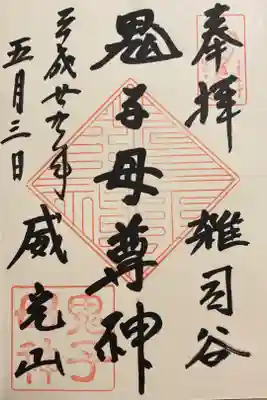 奉拝
雑司谷
鬼子母尊神
平成廿九年
五月三日
威光山
鬼子
母神